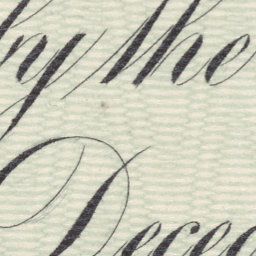 by the
Decea